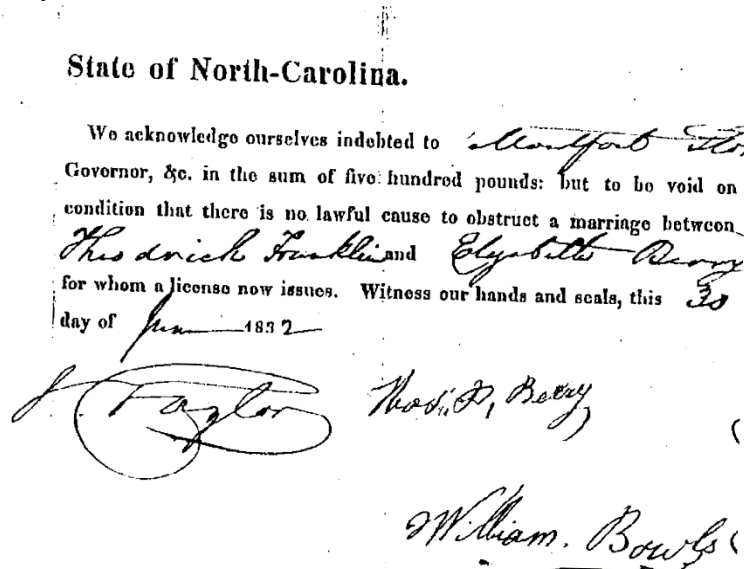 State of North-Carolina.
We acknowledge ourselves indebted to Montfort Sto
Governor, &c. in the sum of five hundred pounds: but to be void on
condition that there is no lawful cause to obstruct a marriage between
Theodrick Franklin and Elizabeth Berry
for whom a license now issues. Witness our hands and seals, this 30
day of June 1832
J Taylor
Thos. P. Berry
William. Bowls